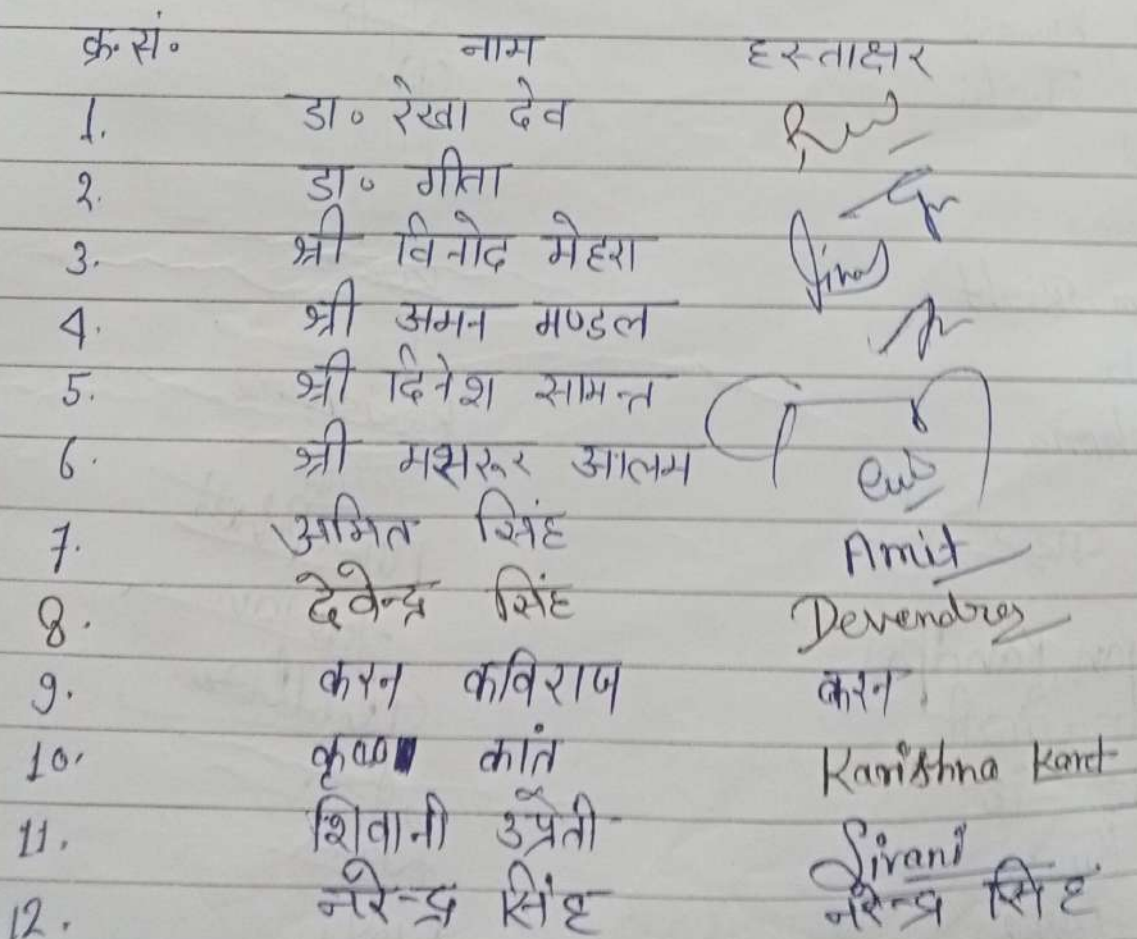 क्र.सं. नाम हस्ताक्षर
1. डा० रेखा देव
2. डा० गीता
3. श्री विनोद मेहरा
4. श्री अमन मण्डल
5. श्री दिनेश सामन्त
6. श्री मशरूर आलम
7. अमित सिंह Amit
8. देवेन्द्र सिंह Devendra
9. करन कविराज करन
10. कृष्ण कांत Karishna Kant
11. शिवानी उप्रेती Sivani
12. नरेन्द्र सिंह नरेन्द्र सिंह